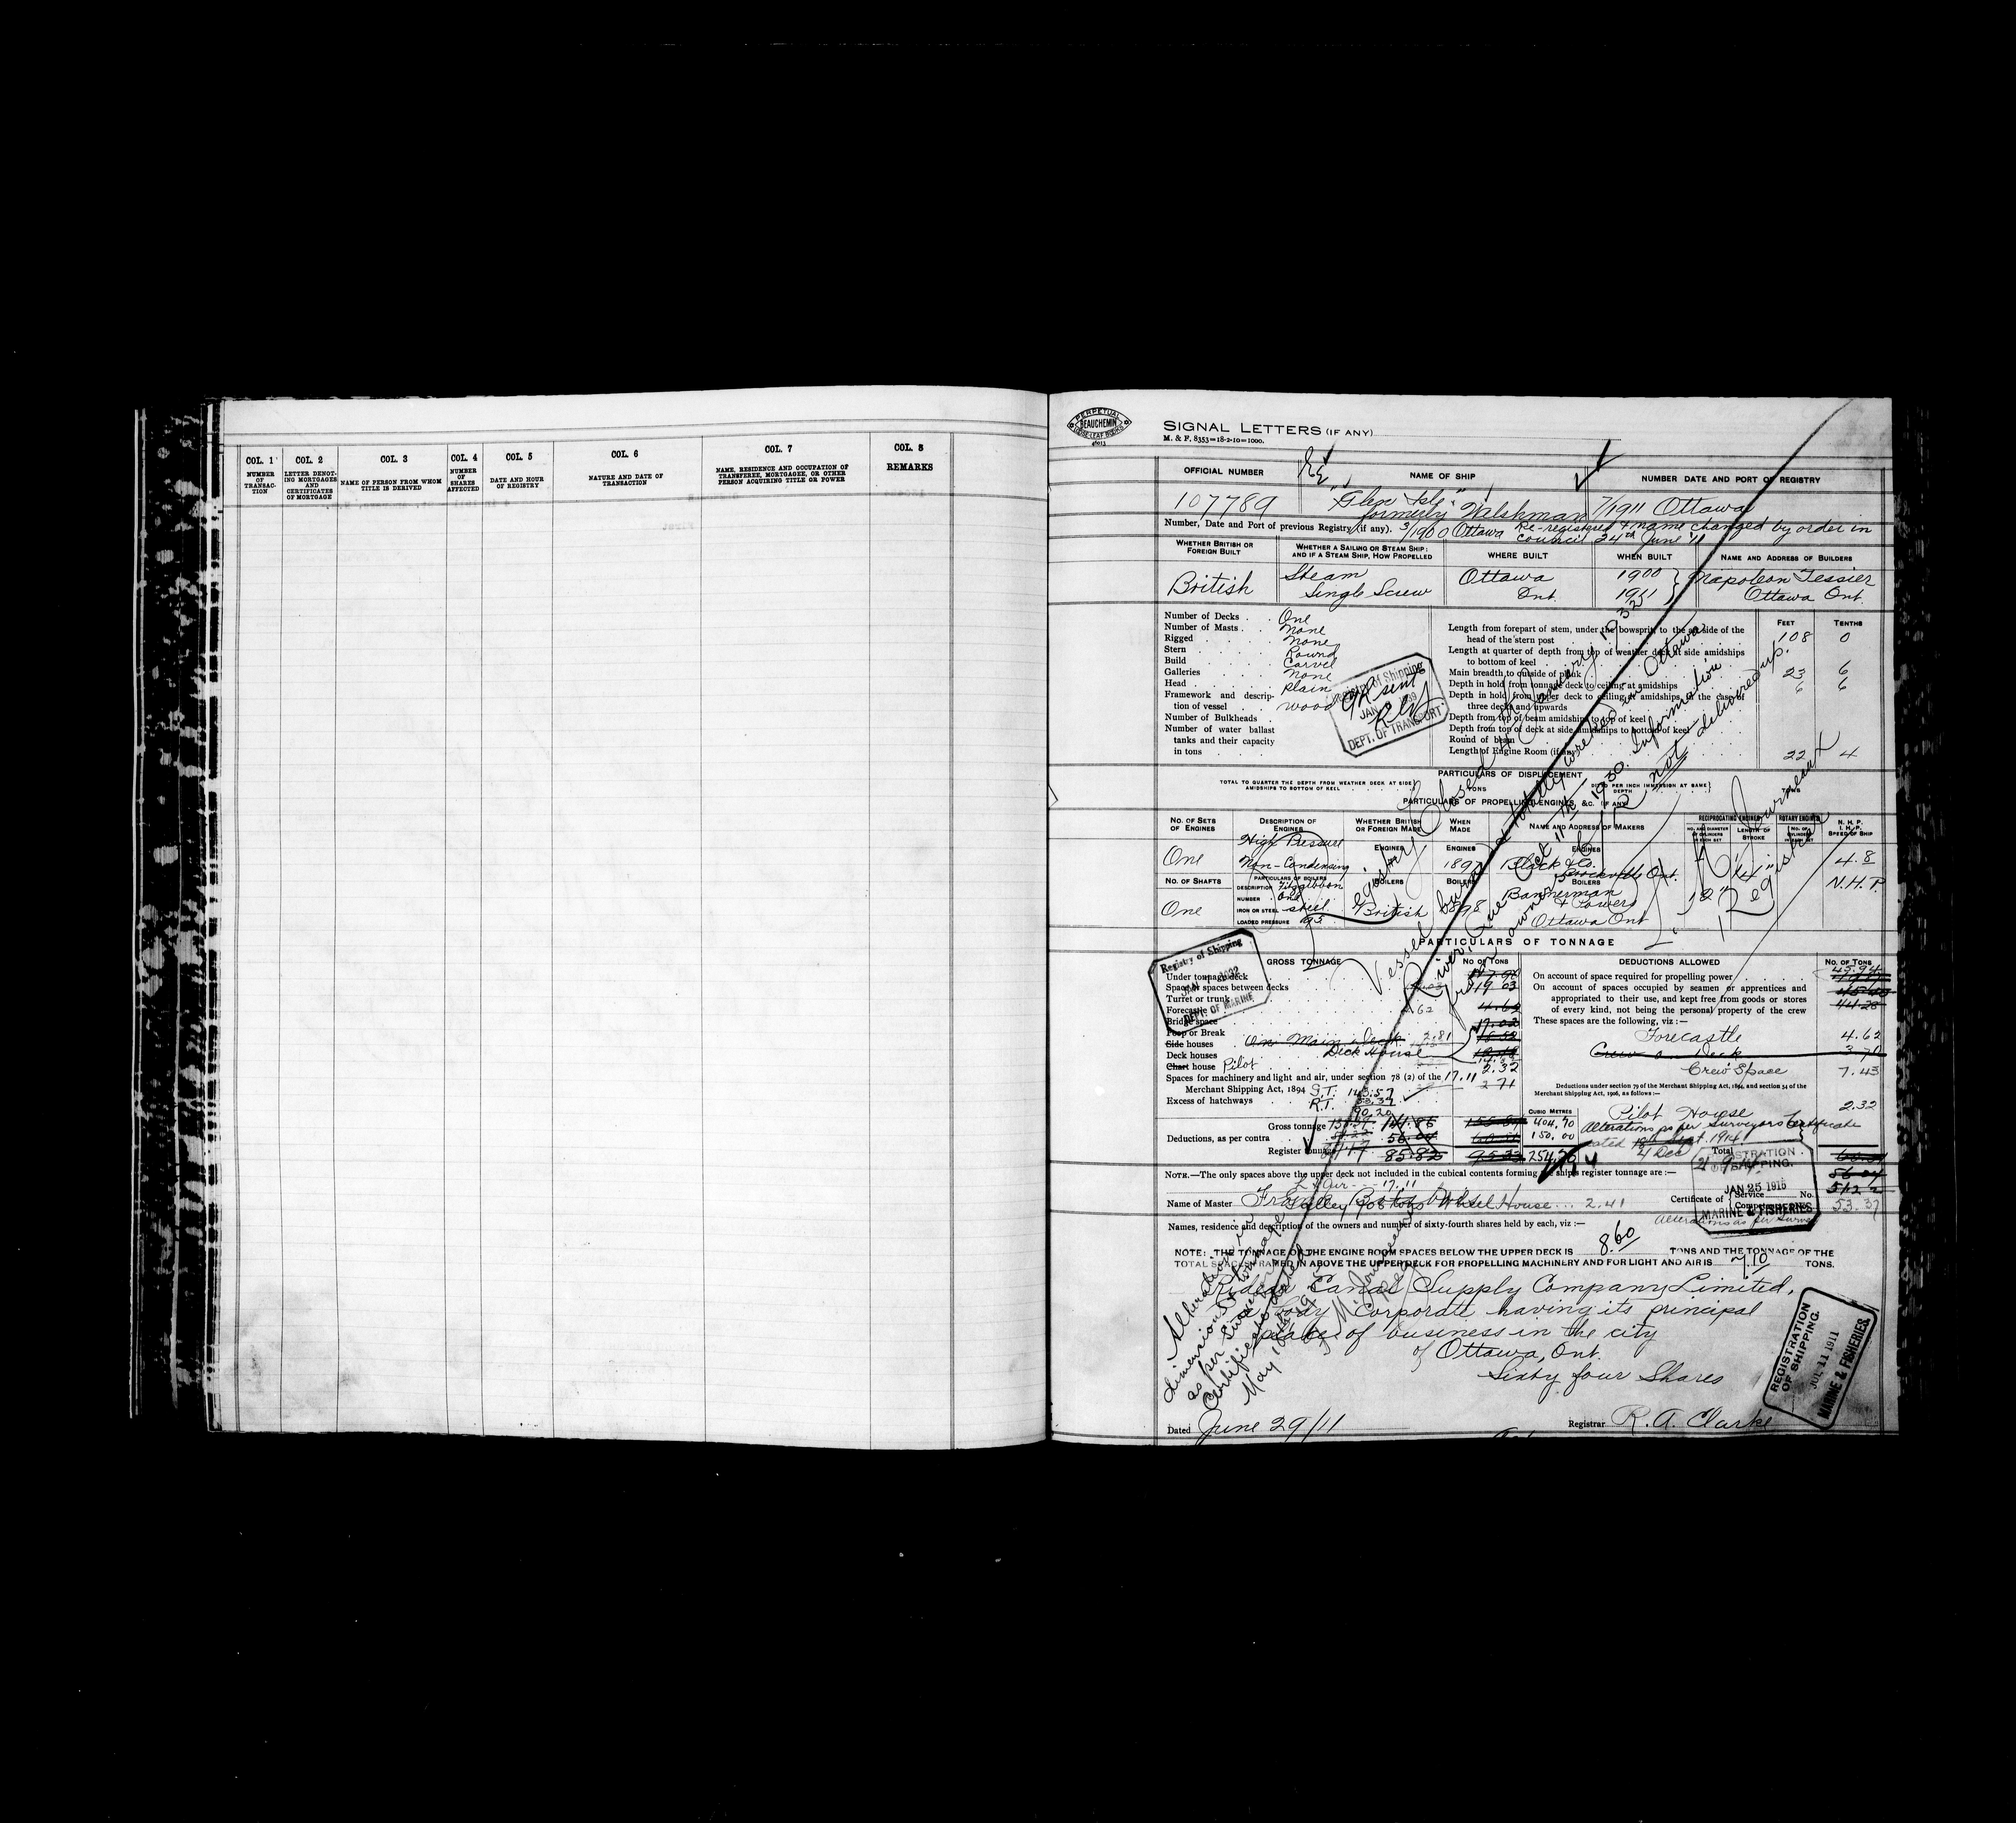 COL. 1
NUMBER OF TRANSAC-TION
COL. 2
LETTER DENOT-ING MORTGAGES AND CERTIFICATES OF MORTGAGE
COL. 3
NAME OF PERSON FROM WHOM TITLE IS DERIVED
COL. 4
NUMBER OF SHARES AFFECTED
COL. 5
DATE AND HOUR OF REGISTRY
COL. 6
NATURE AND DATE OF TRANSACTION
COL. 7
NAME, RESIDENCE AND OCCUPATION OF TRANSFEREE, MORTGAGEE, OR OTHER PERSON ACQUIRING TITLE OR POWER
COL. 8
REMARKS
PERPETUAL
BEAUCHEMIN
LOOSE LEAF BOOKS
SIGNAL LETTERS (IF ANY)
M. & F. 8353=18-2-10=1000.
OFFICIAL NUMBER
NAME OF SHIP
NUMBER DATE AND PORT OF REGISTRY
107789
"Glen Isle"
formerly Welshman
7/1911 Ottawa
Number, Date and Port of previous Registry (if any). 3/1900 Ottawa Re-registered & name changed by order in
Council 24th June '11
WHETHER BRITISH OR FOREIGN BUILT
WHETHER A SAILING OR STEAM SHIP: AND IF A STEAM SHIP, HOW PROPELLED
WHERE BUILT
WHEN BUILT
NAME AND ADDRESS OF BUILDERS
British
Steam
Single Screw
Ottawa
Ont.
1900
1911
Napoleon Tessier
Ottawa Ont.
Number of Decks One
Number of Masts None
Rigged None
Stern Round
Build Carvel
Galleries None
Head Plain
Framework and descrip-
tion of vessel wood
Number of Bulkheads
Number of water ballast
tanks and their capacity
in tons
FEET
TENTHS
Length from forepart of stem, under the bowsprit to the aft side of the
head of the stern post 108 0
Length at quarter of depth from top of weather deck at side amidships
to bottom of keel
Main breadth to outside of plank 23 6
Depth in hold from tonnage deck to ceiling at amidships 6 6
Depth in hold from upper deck to ceiling at amidships, in the case of
three decks and upwards
Depth from top of beam amidships to top of keel
Depth from top of deck at side amidships to bottom of keel
Round of beam
Length of Engine Room (if any) 22 4
Registry of Shipping
DEPT. OF TRANSPORT
PARTICULARS OF DISPLACEMENT
TOTAL TO QUARTER THE DEPTH FROM WEATHER DECK AT SIDE AMIDSHIPS TO BOTTOM OF KEEL
TONS
DITTO PER INCH IMMERSION AT SAME DEPTH
PARTICULARS OF PROPELLING ENGINES, &C. (IF ANY)
NO. OF SETS OF ENGINES
DESCRIPTION OF ENGINES
WHETHER BRITISH OR FOREIGN MADE
WHEN MADE
NAME AND ADDRESS OF MAKERS
RECIPROCATING ENGINES
LENGTH OF STROKE
ROTARY ENGINES
N. H. P.
I. H. P.
SPEED OF SHIP
ENGINES
ENGINES
ENGINES
One
High Pressure
Non-Condensing
Black & Co.
Brockville Ont.
14"
12"
4.8
N.H.P.
NO. OF SHAFTS
PARTICULARS OF BOILERS
BOILERS
BOILERS
BOILERS
One
DESCRIPTION Fitzgibbon
NUMBER One
IRON OR STEEL steel
LOADED PRESSURE 95
British
1898
Bannerman
& Powers
Ottawa Ont
Registry Closed 4th January 1932
Vessel burned & totally wrecked in Ottawa
River, Que Oct 11th 1930. Information
from owner. C/R not delivered up.
Registrar
PARTICULARS OF TONNAGE
GROSS TONNAGE
NO. OF TONS
DEDUCTIONS ALLOWED
NO. OF TONS
Registry of Shipping
DEPT. OF MARINE
Under tonnage deck
Space or spaces between decks 19 03
Turret or trunk
Forecastle 4.62
Bridge space
Poop or Break
Side houses On Main Deck 2.81
Deck houses Deck House
Chart house Pilot 2.32
Spaces for machinery and light and air, under section 78 (2) of the 17.11
Merchant Shipping Act, 1894
Excess of hatchways 2 71
S.T. 143.57
R.T. 53.37
90.20
Gross tonnage 141.86
Deductions, as per contra 56.04
Register tonnage 85.82
CUBIC METRES
404.70
150.00
254.70
On account of space required for propelling power 45.94
On account of spaces occupied by seamen or apprentices and
appropriated to their use, and kept free from goods or stores
of every kind, not being the personal property of the crew 44.28
These spaces are the following, viz:—
Forecastle 4.62
Crew on Deck 3.71
Crew Space 7.43
Deductions under section 79 of the Merchant Shipping Act, 1894, and section 54 of the
Merchant Shipping Act, 1906, as follows:—
Pilot House 2.32
Alterations as per Surveyors Certificate
dated 18th Sept. 1914
Total
56.04
51.22
53.37
NOTE.—The only spaces above the upper deck not included in the cubical contents forming the ships register tonnage are:—
L & Air --- 17.11
Galley
Wheel House ... 2.41
Name of Master
Certificate of Service
Competency No.
REGISTRATION OF SHIPPING.
JAN 25 1915
MARINE & FISHERIES
Alterations as per Survey
Names, residence and description of the owners and number of sixty-fourth shares held by each, viz:—
NOTE: THE TONNAGE OF THE ENGINE ROOM SPACES BELOW THE UPPER DECK IS 8.60 TONS AND THE TONNAGE OF THE
TOTAL SPACES FRAMED IN ABOVE THE UPPER DECK FOR PROPELLING MACHINERY AND FOR LIGHT AND AIR IS 7.10 TONS.
Rideau Canal Supply Company Limited,
a body Corporate having its principal
place of business in the city
of Ottawa, Ont.
Sixty four Shares
Alterations in
dimensions & tonnage
as per Surveyors
Certificate dated
REGISTRATION OF SHIPPING.
JUL 11 1911
MARINE & FISHERIES.
Dated June 29/11
Registrar R. A. Clarke